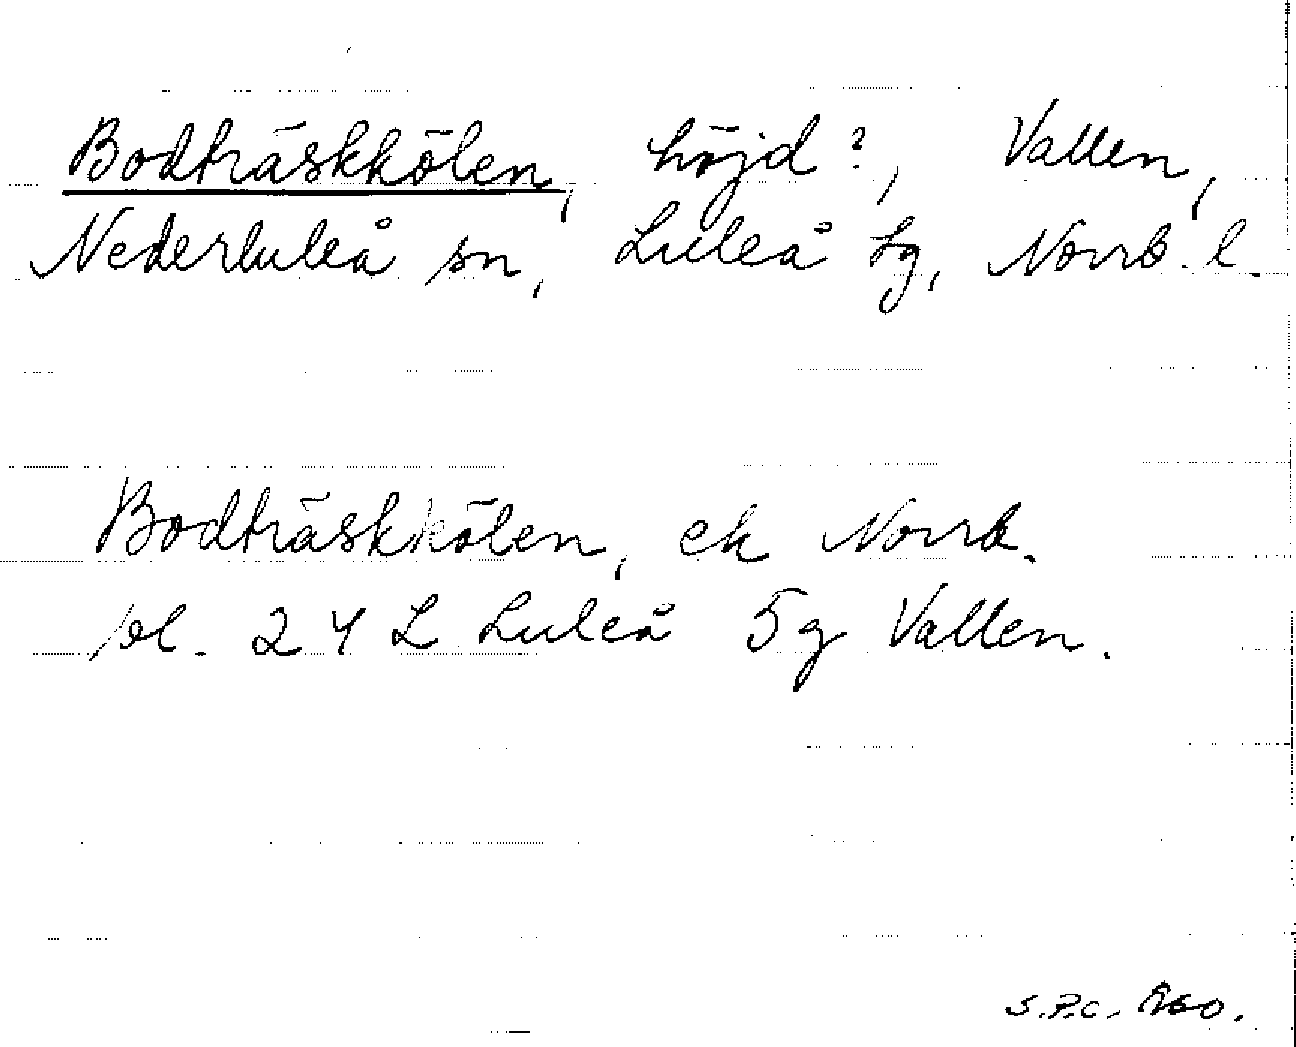 Bodträskkölen, höjd?, Vallen,
Nederluleå sn, Luleå tg, Norrb. l.
Bodträskkölen, ek Norrb.
bl. 24 L Luleå 5g Vallen.
S.P.C. 1960.